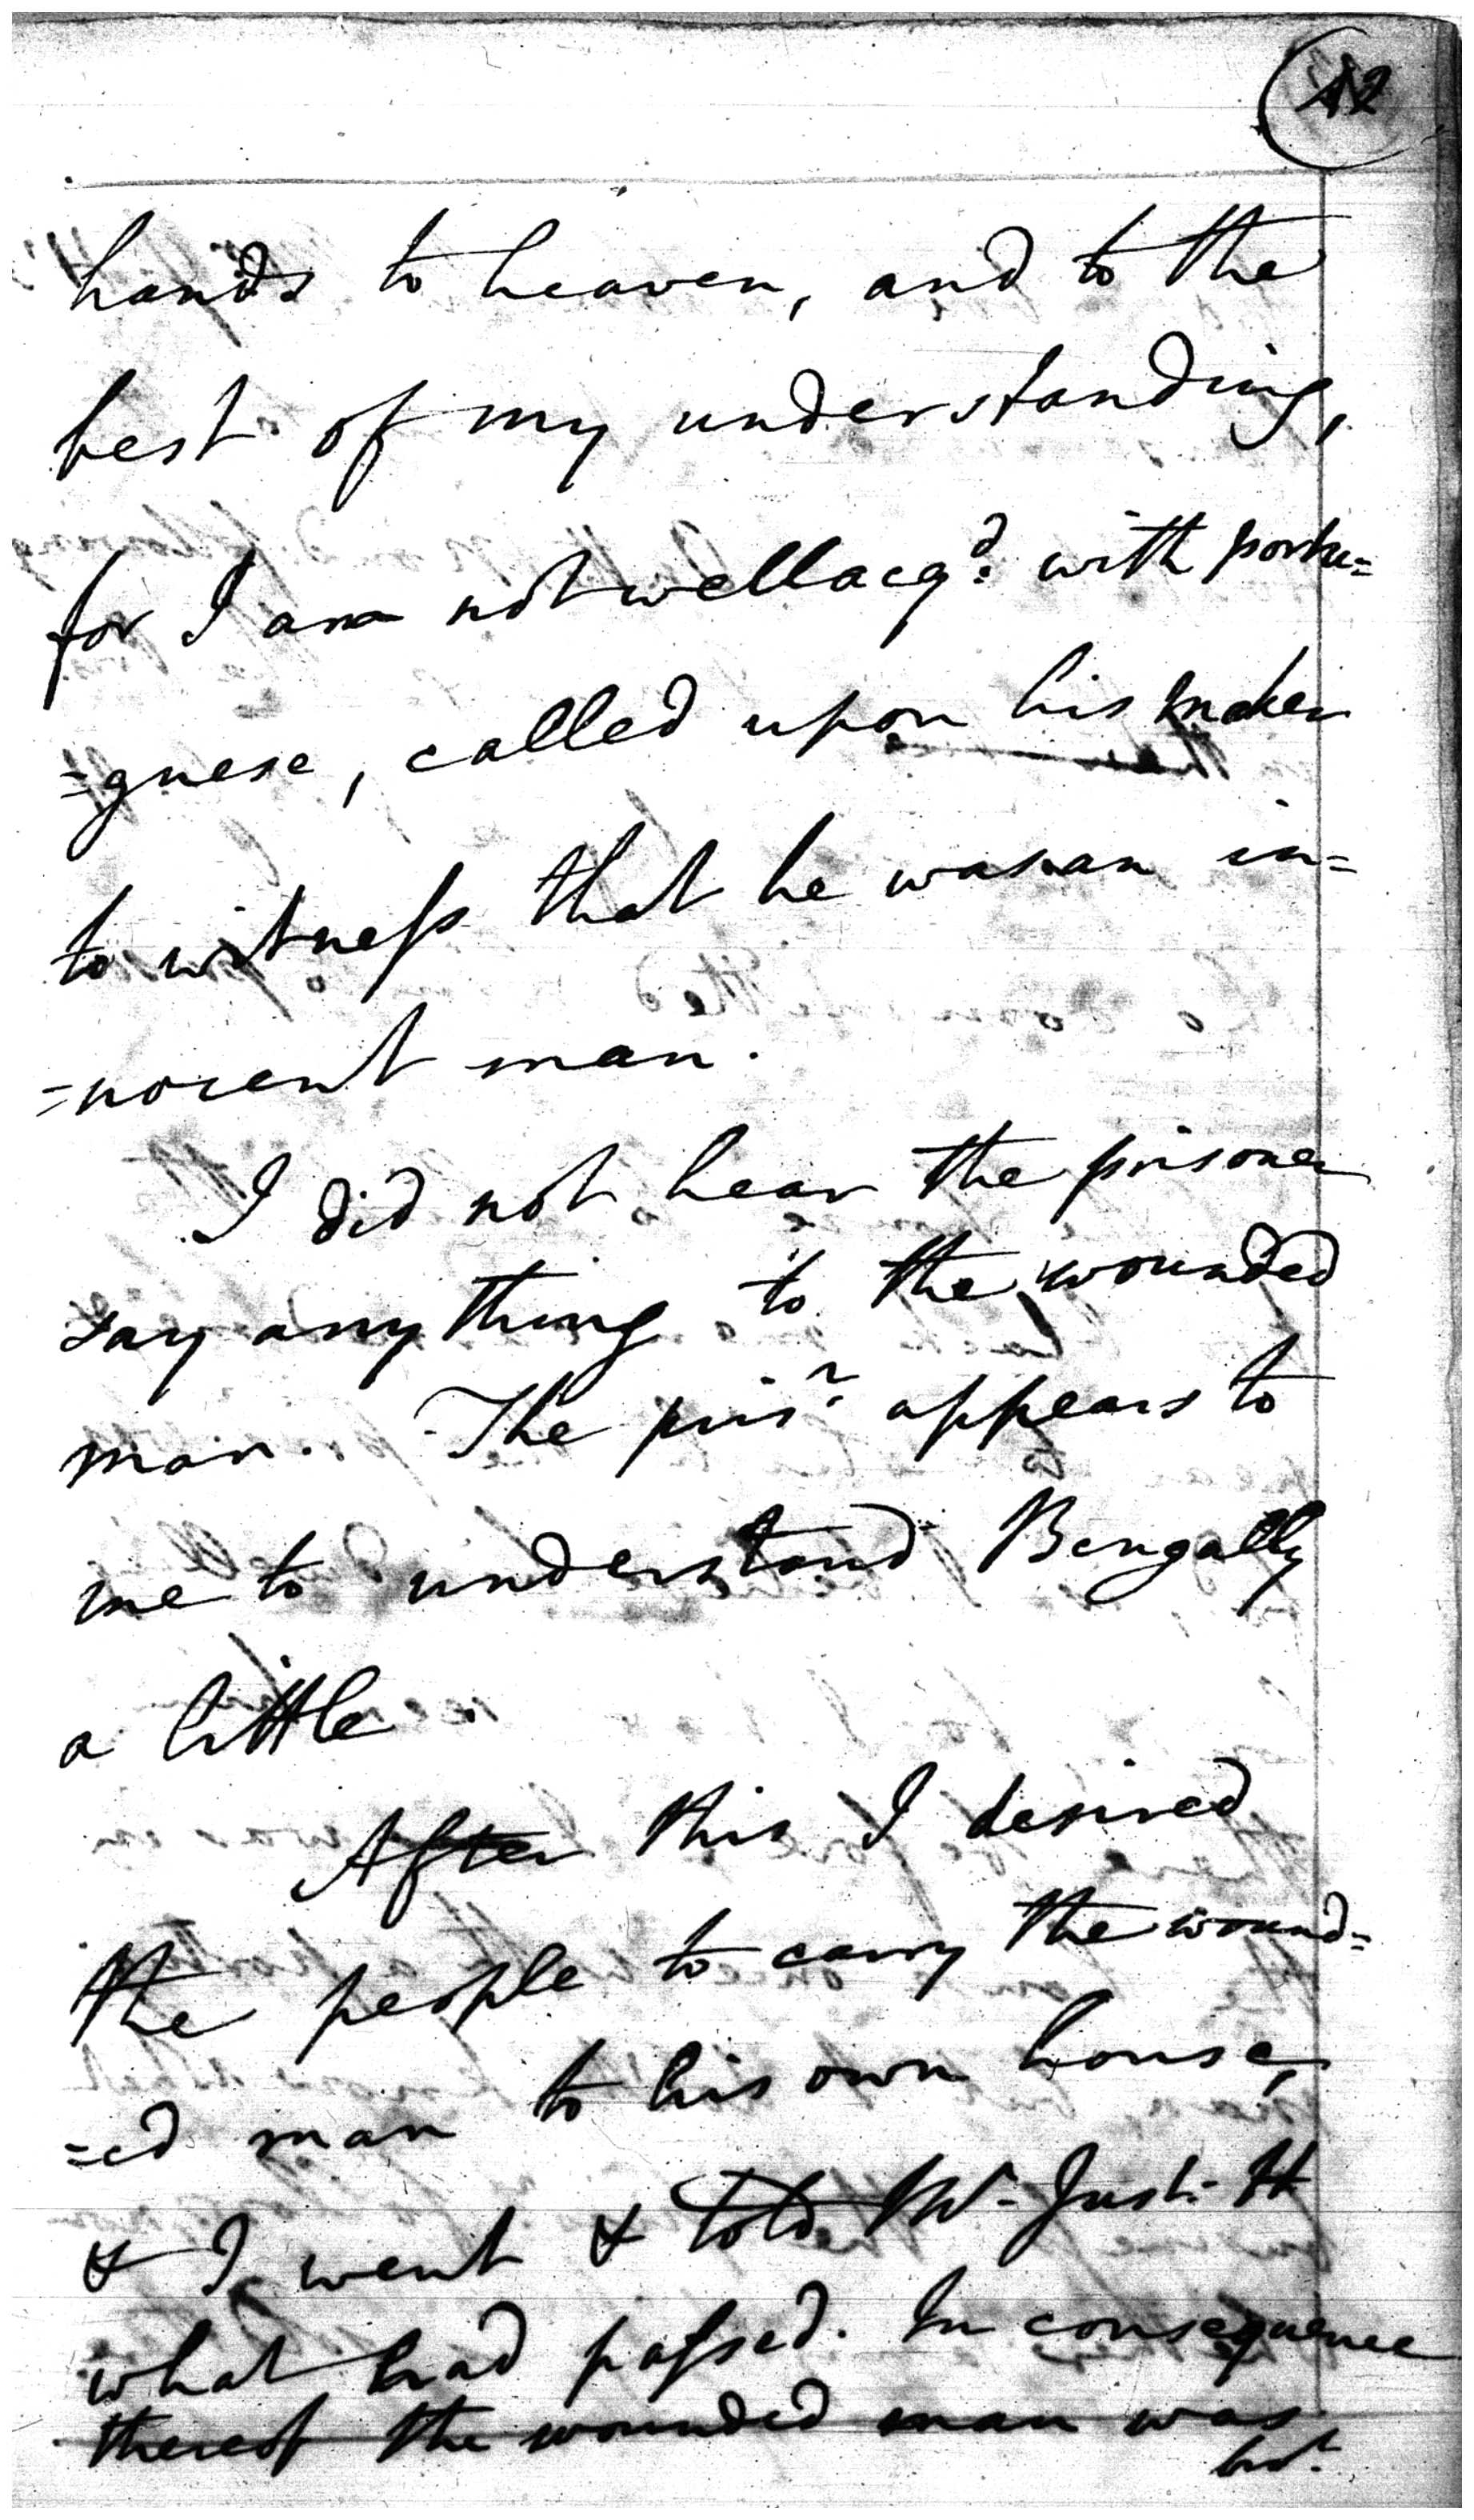 42
hands to heaven, and to the
best of my understanding,
for I am not well acqd. with portu=
=guese, called upon his maker
to witness that he was an in=
=nocent man.
I did not hear the prisoner
say any thing to the wounded
man. The prisr. appears to
me to understand Bengally
a little
After this I desired
the people to carry the wound=
=ed man to his own house,
& I went & told Mr. Just. H
what had passed. In consequence
thereof the wounded man was
brot.